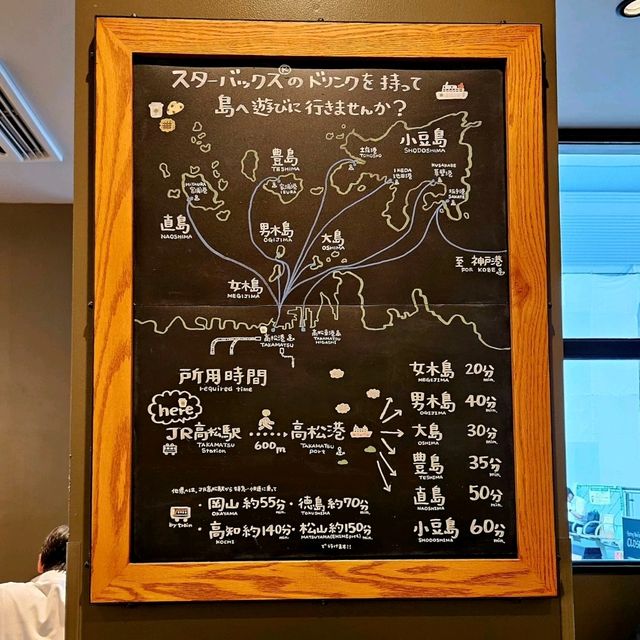 スターバックス®のドリンクを持って
島へ遊びに行きませんか?
小豆島
SHODOSHIMA
土庄港
TONOSHO
豊島
TESHIMA
IKEDA
池田港
KUSAKABE
草壁港
坂手港
SAKATE
家浦港
IEURA
宮浦港
直島
NAOSHIMA
男木島
OGIJIMA
大島
OSHIMA
至 神戸港
FOR KOBE
女木島
MEGIJIMA
高松港
TAKAMATSU
高松東港
TAKAMATSU
HIGASHI
所用時間
required time
here
JR高松駅
TAKAMATSU
Station
600m
高松港
TAKAMATSU
port
女木島 20分
MEGIJIMA min.
男木島 40分
OGIJIMA min.
大島 30分
OSHIMA min.
豊島 35分
TESHIMA min.
直島 50分
NAOSHIMA min.
小豆島 60分
SHODOSHIMA min.
by train
・岡山 約55分 ・徳島 約70分
OKAYAMA TOKUSHIMA
・高知 約140分 ・松山 約150分
KOCHI MATSUYAMA
で行けます!!